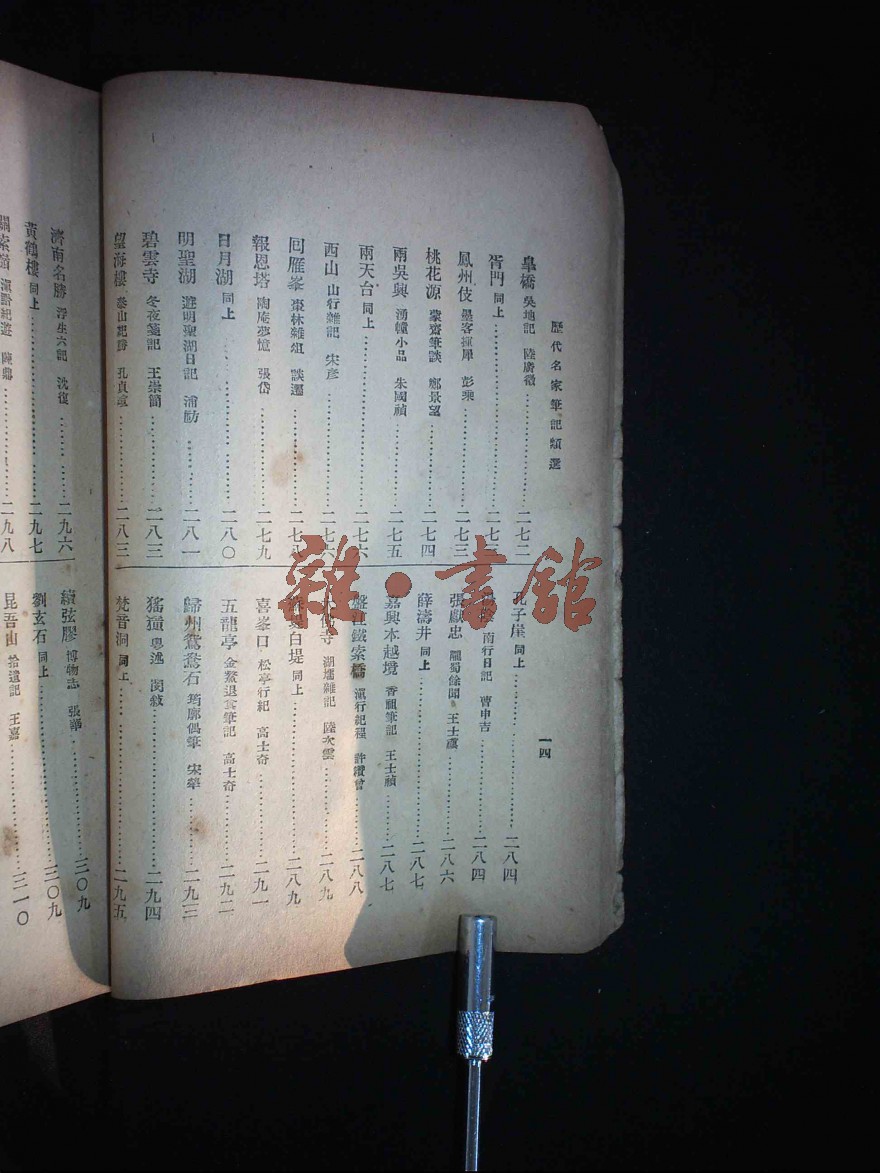 歷代名家筆記類選
一四
皐橋 吳地記 陸廣微…………二七二
胥門 同上…………二七三
鳳州伎 墨客揮犀 彭乘…………二七三
桃花源 蒙齋筆談 鄭景望…………二七四
兩吳興 湧幢小品 朱國禎…………二七五
兩天台 同上…………二七六
西山 山行雜記 宋彥…………二七六
回雁峯 棗林雜俎 談遷…………二七八
報恩塔 陶庵夢憶 張岱…………二七九
日月湖 同上…………二八〇
明聖湖 遊明聖湖日記 浦祊…………二八一
碧雲寺 冬夜箋記 王崇簡…………二八三
望海樓 泰山紀勝 孔貞瑄…………二八三
孔子崖 同上…………二八四
南行日記 曹申吉…………二八四
張獻忠 隴蜀餘聞 王士禛…………二八六
薛濤井 同上…………二八七
嘉興本越境 香祖筆記 王士禎…………二八七
盤江鐵索橋 滇行紀程 許纘曾…………二八八
寺 湖壖雜記 陸次雲…………二八九
白堤 同上…………二八九
喜峯口 松亭行紀 高士奇…………二九一
五龍亭 金鰲退食筆記 高士奇…………二九二
歸州鴛鴦石 筠廊偶筆 宋犖…………二九三
猺獞 粵述 閔敍…………二九四
梵音洞 同上…………二九五
濟南名勝 浮生六記 沈復…………二九六
黃鶴樓 同上…………二九七
關索嶺 滇黔紀遊 陳鼎…………二九八
續弦膠 博物志 張華…………三〇九
劉玄石 同上…………三〇九
昆吾山 拾遺記 王嘉…………三一〇
雜·書館